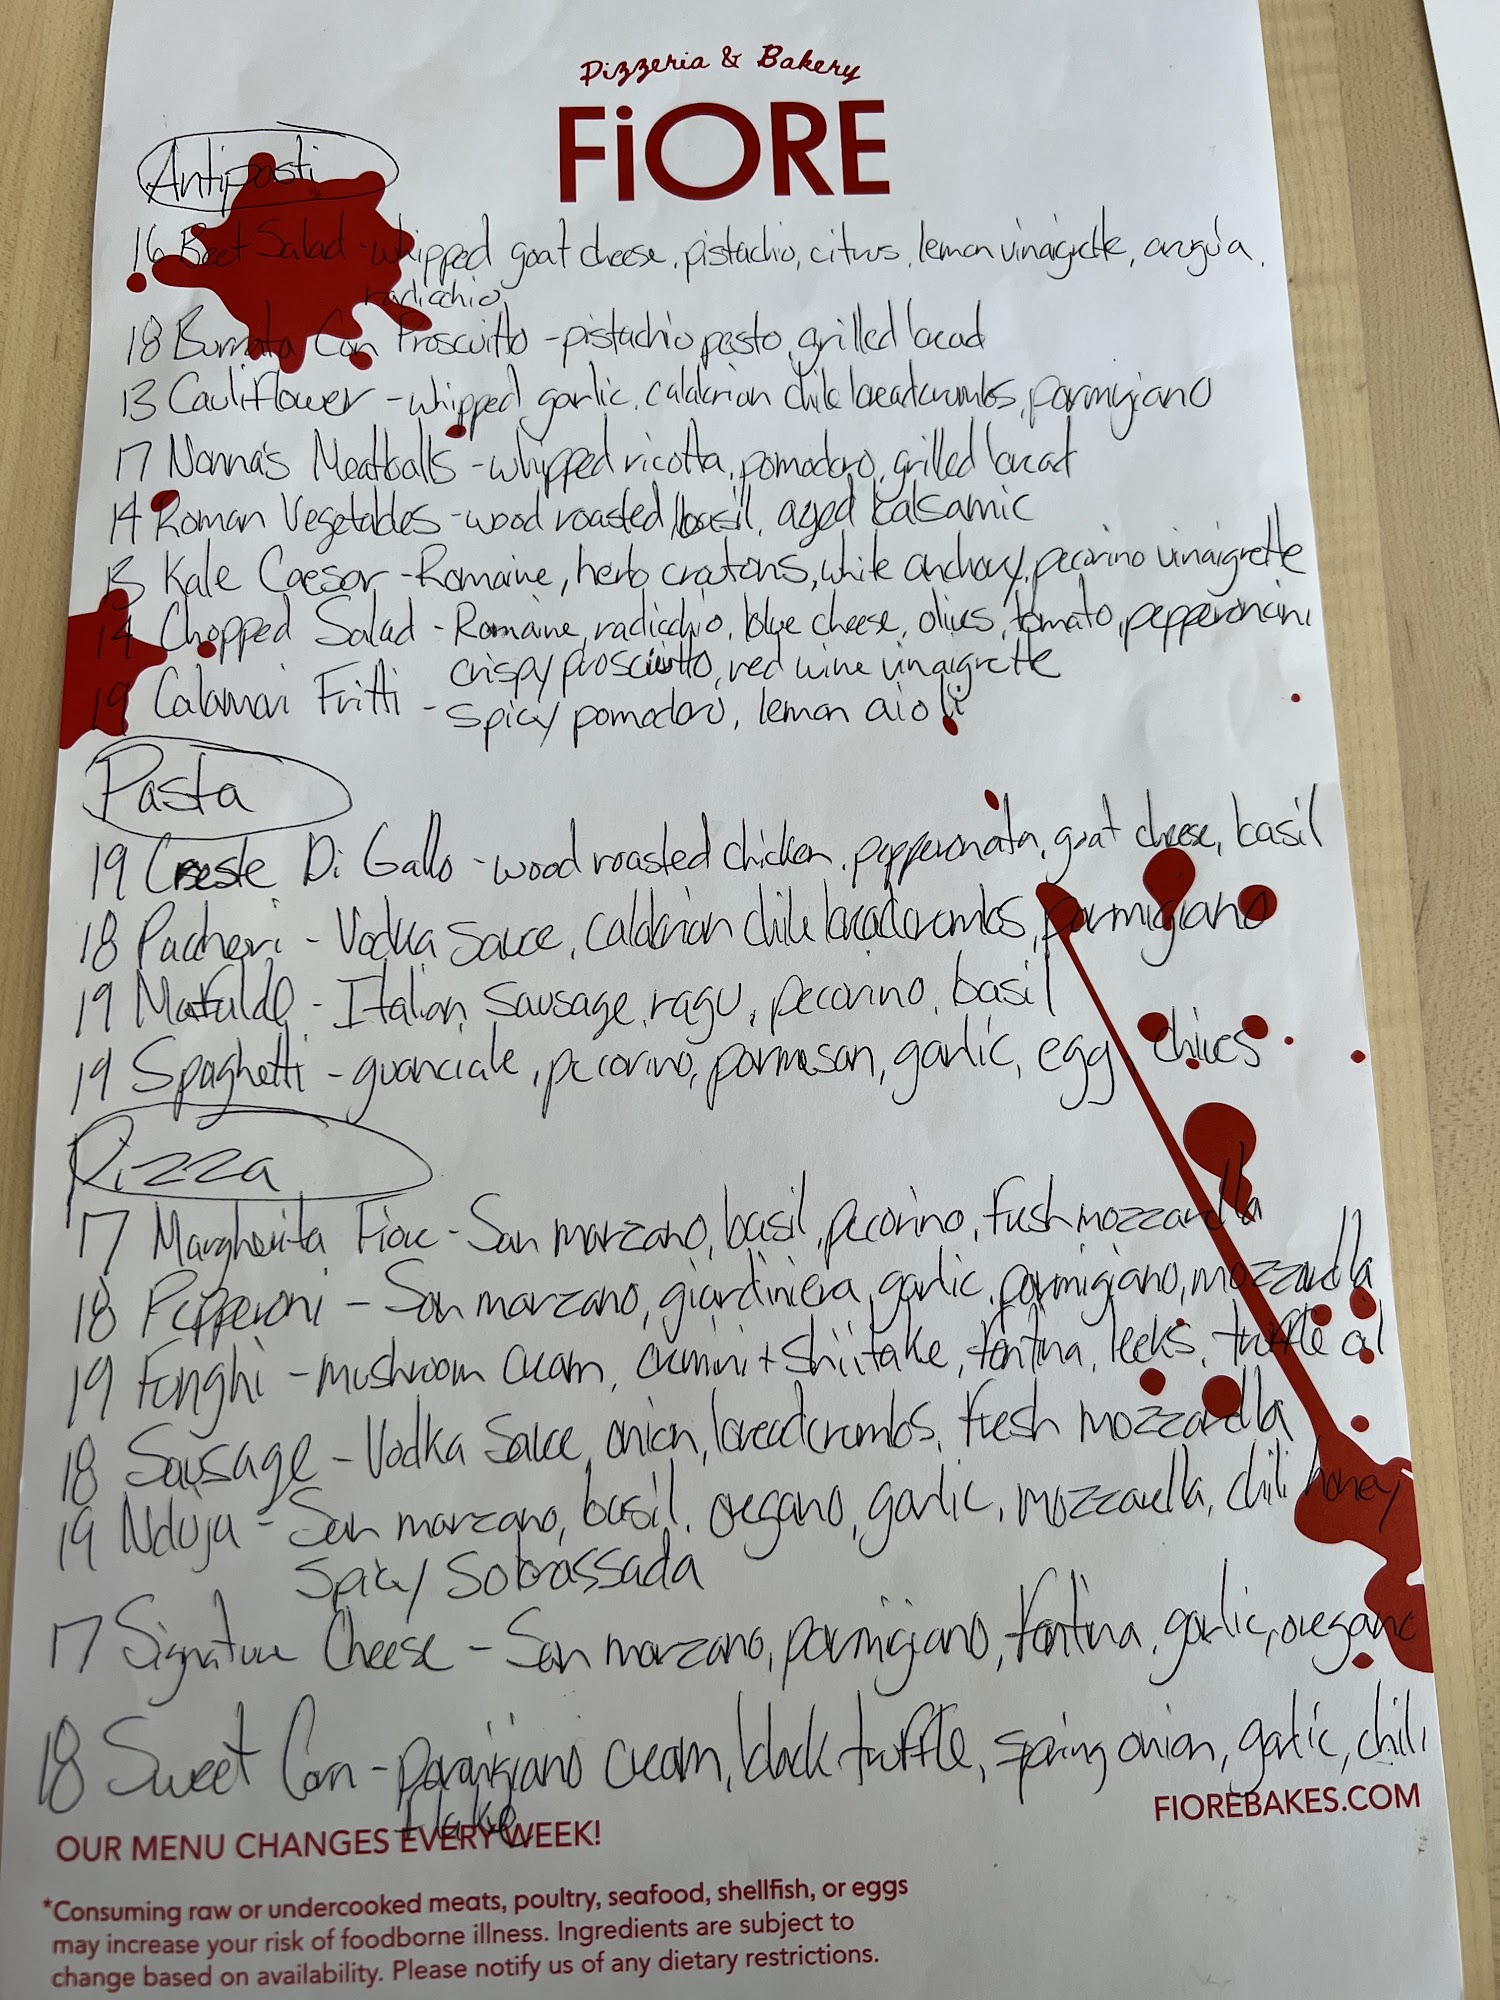 Pizzeria & Bakery
FiORE
Antipasti
16 Beet Salad - whipped goat cheese, pistachio, citrus, lemon vinaigrette, arugua,
radicchio
18 Burrata Con Proscuitto - pistachio pesto, grilled bread
13 Cauliflower - whipped garlic, calabrian chile breadcrumbs, parmigiano
17 Nonna's Meatballs - whipped ricotta, pomodoro, grilled bread
14 Roman Vegetables - wood roasted, basil, aged balsamic
13 Kale Caesar - Romaine, herb croutons, white anchovy, pecorino vinaigrette
14 Chopped Salad - Romaine, radicchio, blue cheese, olives, tomato, pepperoncini
crispy prosciutto, red wine vinaigrette
19 Calamari Fritti - spicy pomodoro, lemon aioli
Pasta
19 Creste Di Gallo - wood roasted chicken, pepperonata, goat cheese, basil
18 Paccheri - Vodka Sauce, calabrian chile breadcrumbs, parmigiano
19 Mafalde - Italian Sausage, ragu, pecorino, basil
19 Spaghetti - guanciale, pecorino, parmesan, garlic, egg, chives
Pizza
17 Margherita Fiore - San marzano, basil, pecorino, fresh mozzarella
18 Pepperoni - San marzano, giardiniera, garlic, parmigiano, mozzarella
19 Funghi - mushroom cream, crimini + shiitake, fontina, leeks, truffle oil
18 Sausage - Vodka Sauce, onion, breadcrumbs, fresh mozzarella
19 Nduja - San marzano, basil, oregano, garlic, mozzarella, chili honey
Spicy Sobrassada
17 Signature Cheese - San marzano, parmigiano, fontina, garlic, oregano
18 Sweet Corn - parmigiano cream, black truffle, spring onion, garlic, chili
flake
FIOREBAKES.COM
OUR MENU CHANGES EVERY WEEK!
*Consuming raw or undercooked meats, poultry, seafood, shellfish, or eggs
may increase your risk of foodborne illness. Ingredients are subject to
change based on availability. Please notify us of any dietary restrictions.